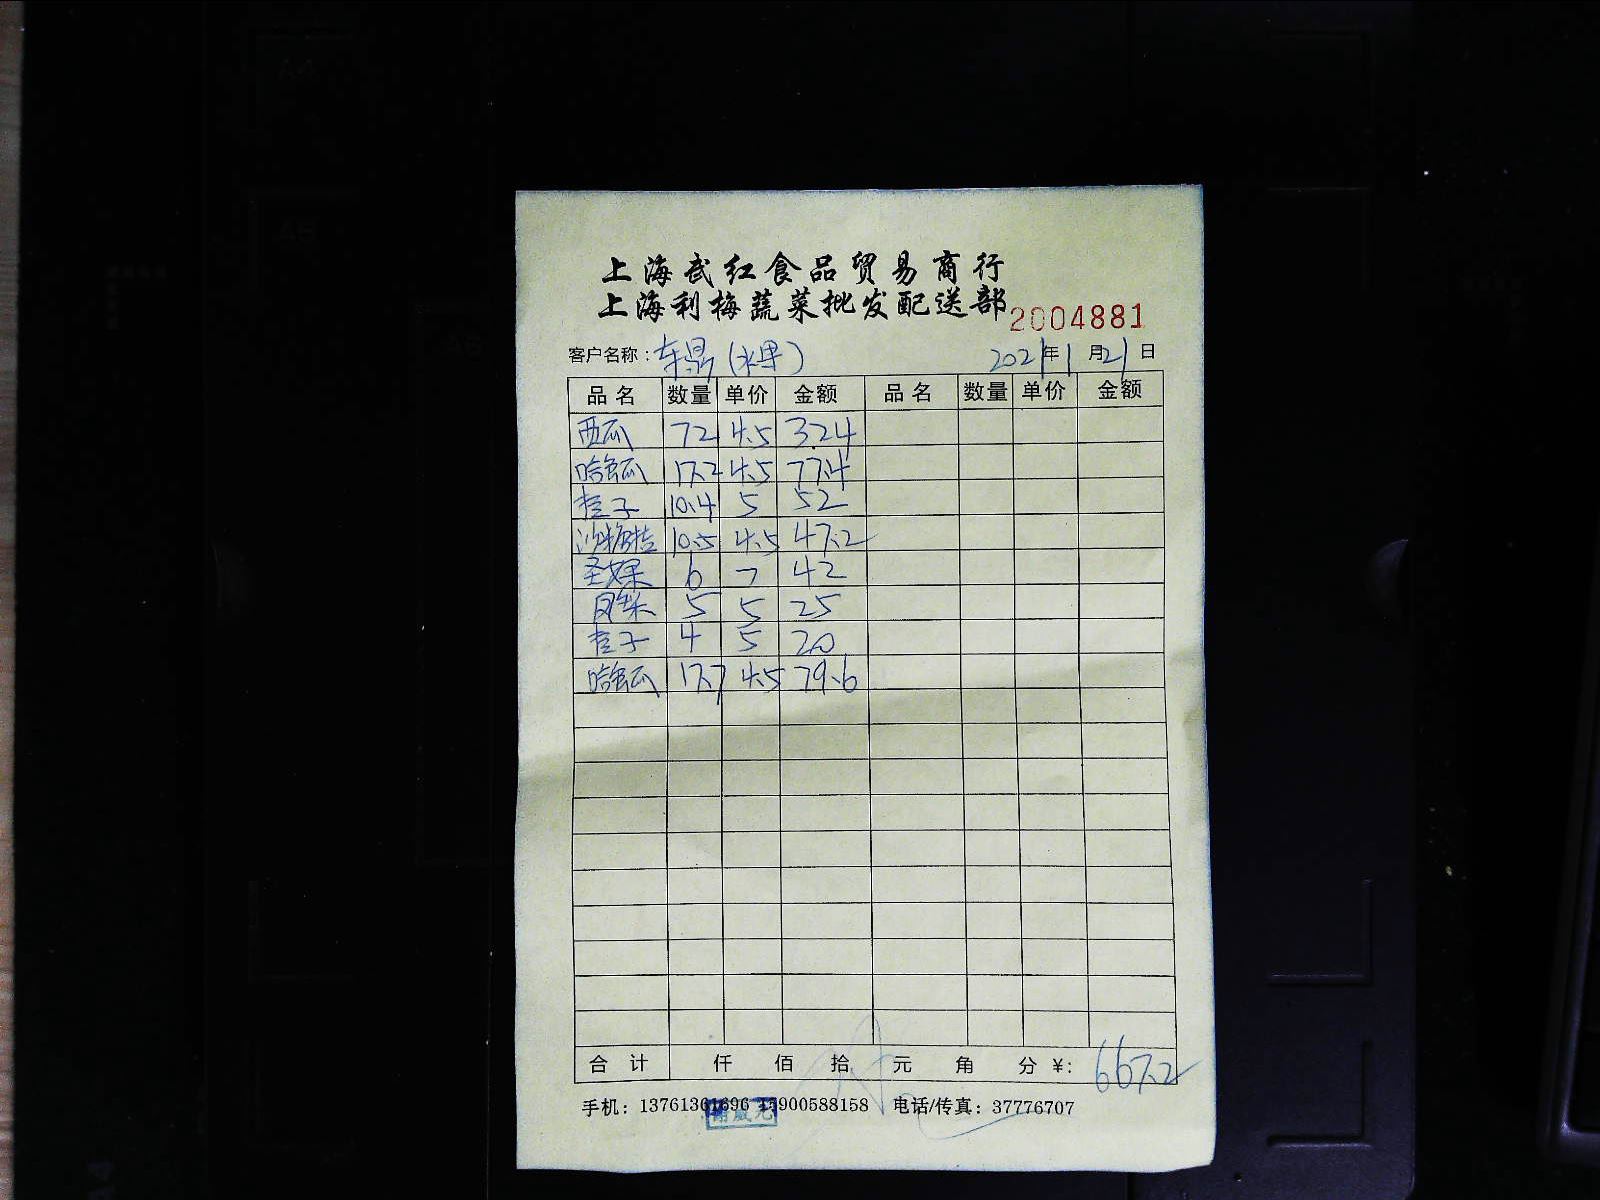 上海武红食品贸易商行
上海利梅蔬菜批发配送部
2004881
客户名称：车易(水果) 2021年1月21日
品名 数量 单价 金额 品名 数量 单价 金额
西瓜 72 4.5 324
哈蜜瓜 17.2 4.5 77.4
橙子 10.4 5 52
沙糖桔 10.5 4.5 47.2
圣女果 6 7 42
凤梨 5 5 25
橙子 4 5 20
哈蜜瓜 17.7 4.5 79.6
合计 仟 佰 拾 元 角 分 ¥: 667.2
手机：13761361696 15900588158 电话/传真：37776707